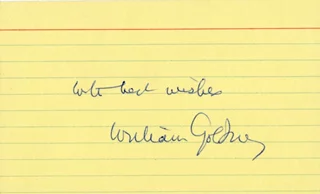 with best wishes
William Golding